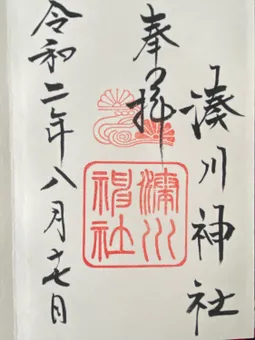 湊川神社
奉拝
湊川神社
令和二年八月十七日